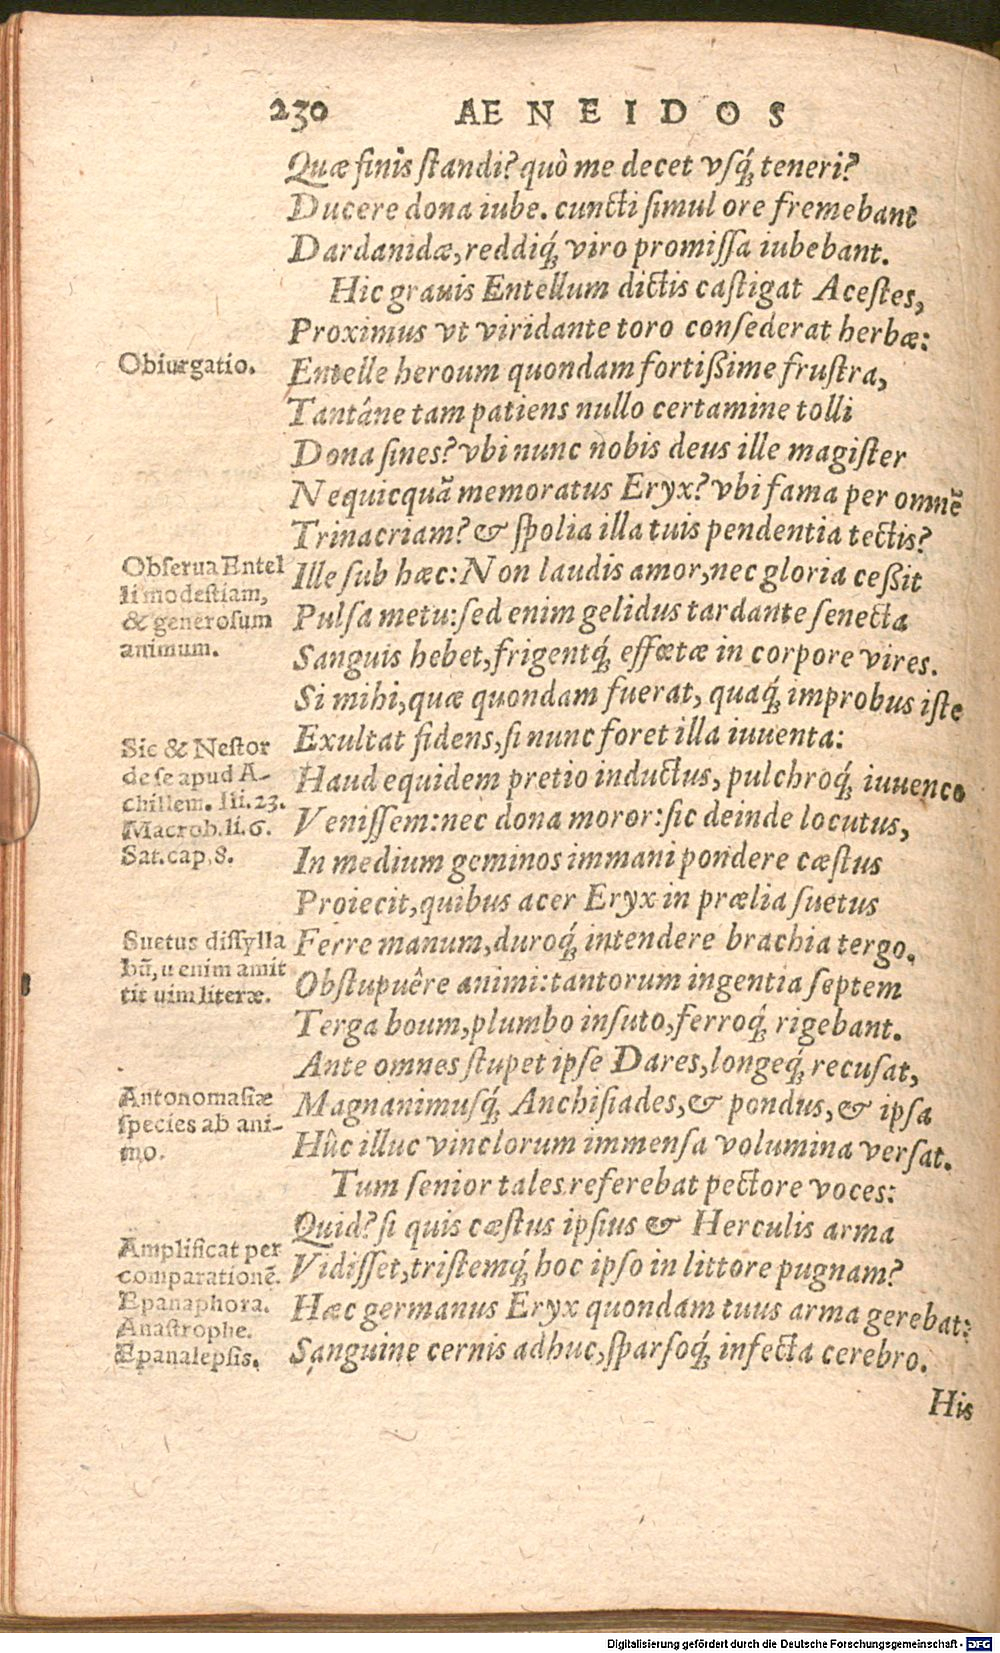 230 AENEIDOS
Quæ finis standi? quò me decet vsq́; teneri?
Ducere dona iube. cuncti simul ore fremebant
Dardanidæ, reddiq́; viro promissa iubebant.
Hic grauis Entellum dictis castigat Acestes,
Proximus vt viridante toro consederat herbæ:
Obiurgatio.
Entelle heroum quondam fortißime frustra,
Tantâne tam patiens nullo certamine tolli
Dona sines? vbi nunc nobis deus ille magister
Nequicquã memoratus Eryx? vbi fama per omnẽ
Trinacriam? & spolia illa tuis pendentia tectis?
Obserua Entel
li modestiam,
& generosum
animum.
Ille sub hæc: Non laudis amor, nec gloria ceßit
Pulsa metu: sed enim gelidus tardante senecta
Sanguis hebet, frigentq́; effœtæ in corpore vires.
Si mihi, quæ quondam fuerat, quaq́; improbus iste
Exultat fidens, si nunc foret illa iuuenta:
Sic & Nestor
de se apud A-
chillem. Ili. 23.
Macrob. li. 6.
Sat. cap. 8.
Haud equidem pretio inductus, pulchroq́; iuuenco
Venissem: nec dona moror: sic deinde locutus,
In medium geminos immani pondere cæstus
Proiecit, quibus acer Eryx in prælia suetus
Suetus dissylla
bũ, u enim amit
tit uim literæ.
Ferre manum, duroq́; intendere brachia tergo.
Obstupuêre animi: tantorum ingentia septem
Terga boum, plumbo insuto, ferroq́; rigebant.
Ante omnes stupet ipse Dares, longeq́; recusat,
Antonomasiæ
species ab ani-
mo.
Magnanimusq́; Anchisiades, & pondus, & ipsa
Hûc illuc vinclorum immensa volumina versat.
Tum senior tales referebat pectore voces:
Quid? si quis cæstus ipsius & Herculis arma
Amplificat per
comparationẽ.
Epanaphora.
Anastrophe.
Epanalepsis.
Vidisset, tristemq́; hoc ipso in littore pugnam?
Hæc germanus Eryx quondam tuus arma gerebat:
Sanguine cernis adhuc, sparsoq́; infecta cerebro.
His
Digitalisierung gefördert durch die Deutsche Forschungsgemeinschaft - DFG